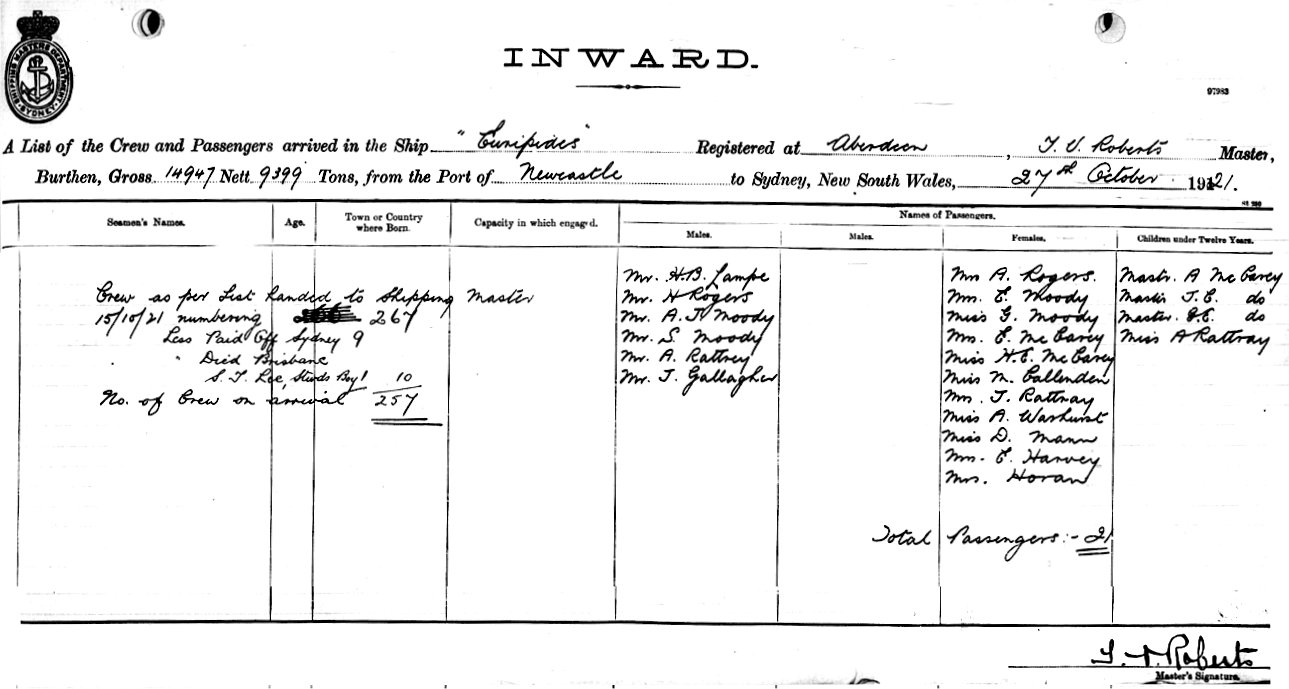 SHIPPING MASTERS DEPARTMENT
SYDNEY
INWARD.
97983
A List of the Crew and Passengers arrived in the Ship "Euripides" Registered at Aberdeen, T. V. Roberts Master,
Burthen, Gross 14947 Nett 9399 Tons, from the Port of Newcastle to Sydney, New South Wales, 27th October 1921.
Seamen's Names. Age. Town or Country where Born. Capacity in which engaged. Names of Passengers.
Males. Males. Females. Children under Twelve Years.
Mr. H.B. Lampe Mrs A. Rogers. Mastr. A McCarey
Crew as per List handed to Shipping Master Mr. H Rogers Mrs. E. Moody Mastr J.E. do
15/10/21 numbering 267 Mr. A.J. Moody Miss G. Moody Master. J.E. do
Less Paid Off Sydney 9 Mr. S. Moody Mrs. E. McCarey Miss A Rattray
" Died Brisbane Mr. A. Rattrey Miss H.E. McCarey
S. T. Lee, Stwds Boy 1 10 Mr. J. Gallagher Miss M. Callenden
No. of Crew on arrival 257 Mrs. J. Rattray
Miss A. Warhurst
Miss D. Mann
Mrs. E. Harvey
Mrs. Horan
Total Passengers:- 21
Master's Signature.